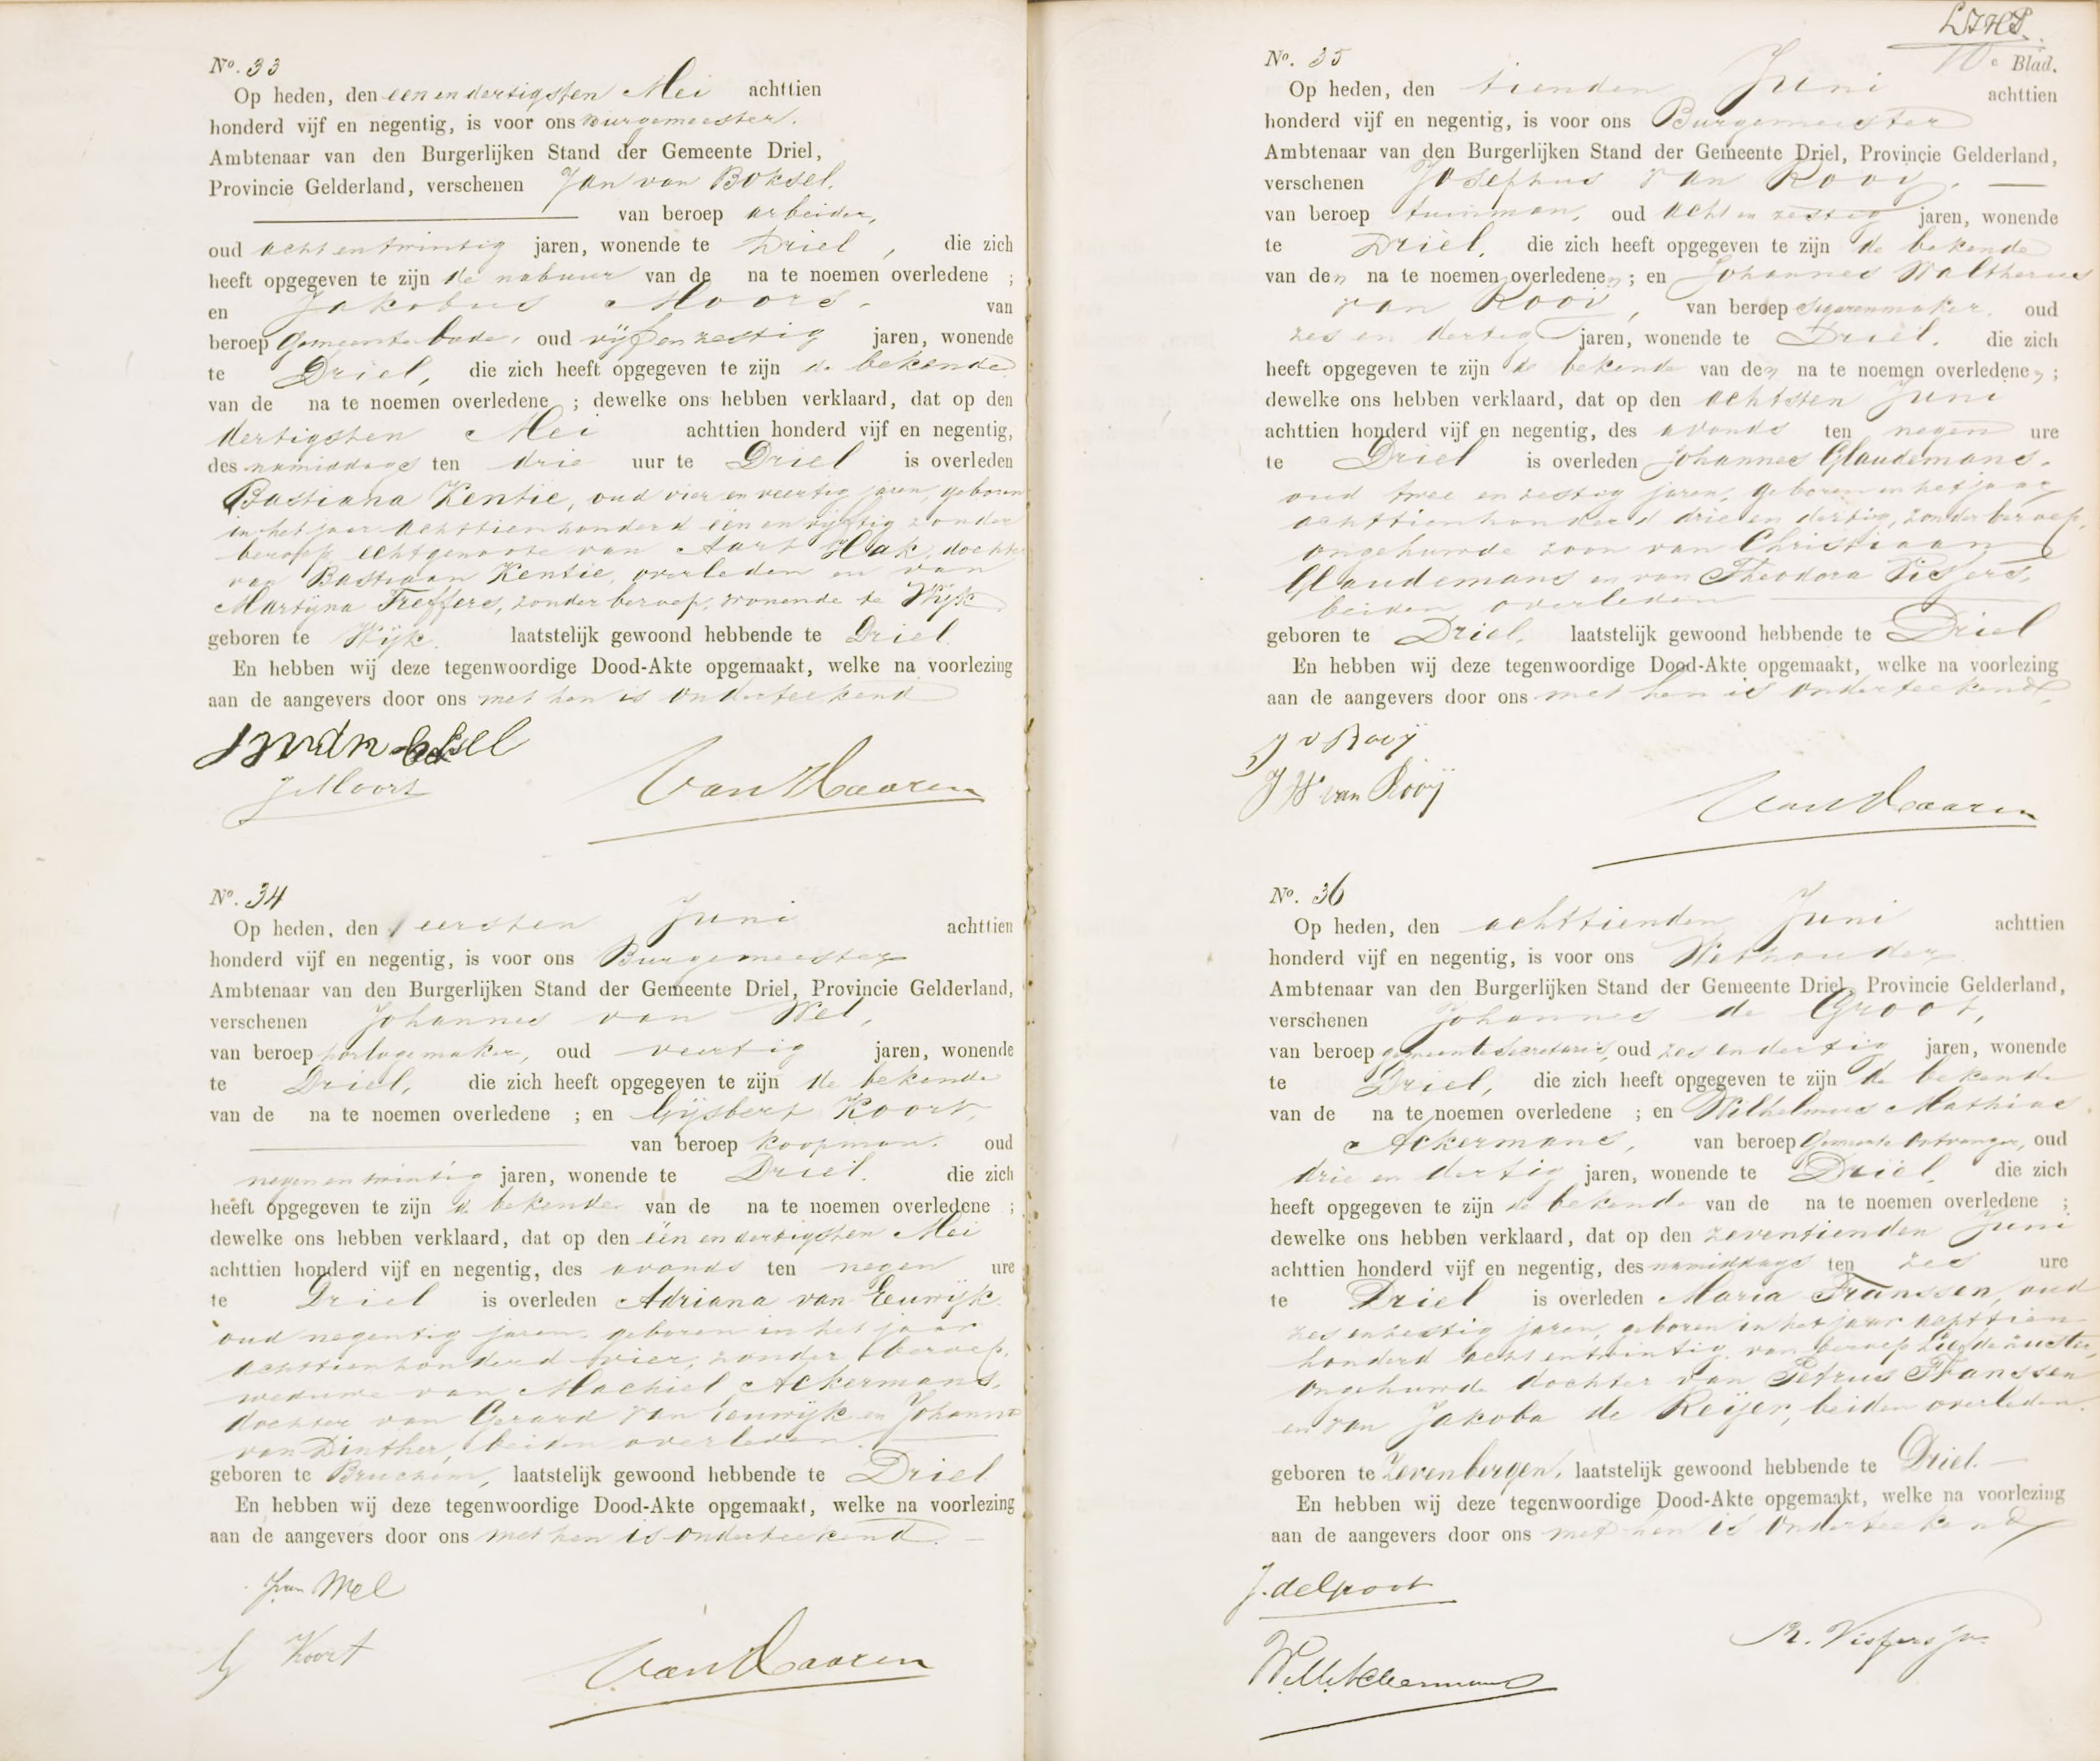 No. 33
Op heden, den een en dertigsten Mei achttien
honderd vijf en negentig, is voor ons Burgemeester.
Ambtenaar van den Burgerlijken Stand der Gemeente Driel,
Provincie Gelderland, verschenen Jan van Boksel,
van beroep arbeider,
oud acht en twintig jaren, wonende te Driel, die zich
heeft opgegeven te zijn de nabuur van de na te noemen overledene ;
en Jakobus Moors. van
beroep Gemeentebode, oud vijf en zestig jaren, wonende
te Driel, die zich heeft opgegeven te zijn de bekende
van de na te noemen overledene ; dewelke ons hebben verklaard, dat op den
dertigsten Mei achttien honderd vijf en negentig,
des namiddags ten drie uur te Driel is overleden
Bastiana Kentie, oud vier en veertig jaren, geboren
in het jaar achttienhonderd één en vijftig zonder
beroep, echtgenoote van Aart Hak, dochter
van Bastiaan Kentie, overleden en van
Martijna Treffers, zonder beroep, wonende te Wijk
geboren te Wijk. laatstelijk gewoond hebbende te Driel.
En hebben wij deze tegenwoordige Dood-Akte opgemaakt, welke na voorlezing
aan de aangevers door ons met hen is onderteekend
J Moors
Van Haaren
No. 34
Op heden, den eersten Juni achttien
honderd vijf en negentig, is voor ons Burgemeester
Ambtenaar van den Burgerlijken Stand der Gemeente Driel, Provincie Gelderland,
verschenen Johannes van Wel,
van beroep horlogemaker, oud veertig jaren, wonende
te Driel, die zich heeft opgegeven te zijn de bekende
van de na te noemen overledene ; en Gijsbert Koort,
van beroep koopman, oud
negen en twintig jaren, wonende te Driel. die zich
heeft opgegeven te zijn de bekende van de na te noemen overledene ;
dewelke ons hebben verklaard, dat op den één en dertigsten Mei
achttien honderd vijf en negentig, des avonds ten negen ure
te Driel is overleden Adriana van Eeuwijk
oud negentig jaren, geboren in het jaar
achttienhonderd vier, zonder beroep,
weduwe van Machiel Ackermans,
dochter van Gerard van Eeuwijk en Johanna
van Dinther, beiden overleden.
geboren te Bruchem, laatstelijk gewoond hebbende te Driel
En hebben wij deze tegenwoordige Dood-Akte opgemaakt, welke na voorlezing
aan de aangevers door ons met hen is onderteekend.
J van Wel
G Koort
Van Haaren
10e Blad.
No. 35
Op heden, den tienden Juni achttien
honderd vijf en negentig, is voor ons Burgemeester
Ambtenaar van den Burgerlijken Stand der Gemeente Driel, Provincie Gelderland,
verschenen Josephus van Rooij,
van beroep tuinman, oud acht en zestig jaren, wonende
te Driel, die zich heeft opgegeven te zijn de bekende
van den na te noemen overledenen ; en Johannes Waltherus
van Rooij, van beroep sigarenmaker, oud
zes en dertig jaren, wonende te Driel, die zich
heeft opgegeven te zijn de bekende van den na te noemen overledenen ;
dewelke ons hebben verklaard, dat op den achtsten Juni
achttien honderd vijf en negentig, des avonds ten negen ure
te Driel is overleden Johannes Glaudemans,
oud twee en zestig jaren, geboren in het jaar
achttienhonderd drie en dertig, zonder beroep,
ongehuwde zoon van Christiaan
Glaudemans en van Theodora Vissers,
beiden overleden
geboren te Driel, laatstelijk gewoond hebbende te Driel
En hebben wij deze tegenwoordige Dood-Akte opgemaakt, welke na voorlezing
aan de aangevers door ons met hen is onderteekend,
J v Rooij
J W van Rooij
Van Haaren
No. 36
Op heden, den achttienden Juni achttien
honderd vijf en negentig, is voor ons Wethouder
Ambtenaar van den Burgerlijken Stand der Gemeente Driel, Provincie Gelderland,
verschenen Johannes de Groot,
van beroep gemeente secretaris, oud zes en dertig jaren, wonende
te Driel, die zich heeft opgegeven te zijn de bekende
van de na te noemen overledene ; en Wilhelmus Mathias
Ackermans, van beroep Gemeente Ontvanger, oud
drie en dertig jaren, wonende te Driel, die zich
heeft opgegeven te zijn de bekende van de na te noemen overledene ;
dewelke ons hebben verklaard, dat op den zeventienden Juni
achttien honderd vijf en negentig, des namiddags ten zes ure
te Driel is overleden Maria Franssen, oud
zes en zestig jaren, geboren in het jaar achttien
honderd acht en twintig, van beroep Liefdezuster,
ongehuwde dochter van Petrus Franssen
en van Jakoba de Reijer, beiden overleden.
geboren te Zevenbergen, laatstelijk gewoond hebbende te Driel.
En hebben wij deze tegenwoordige Dood-Akte opgemaakt, welke na voorlezing
aan de aangevers door ons met hen is onderteekend
J. de Groot
W.M. Ackermans